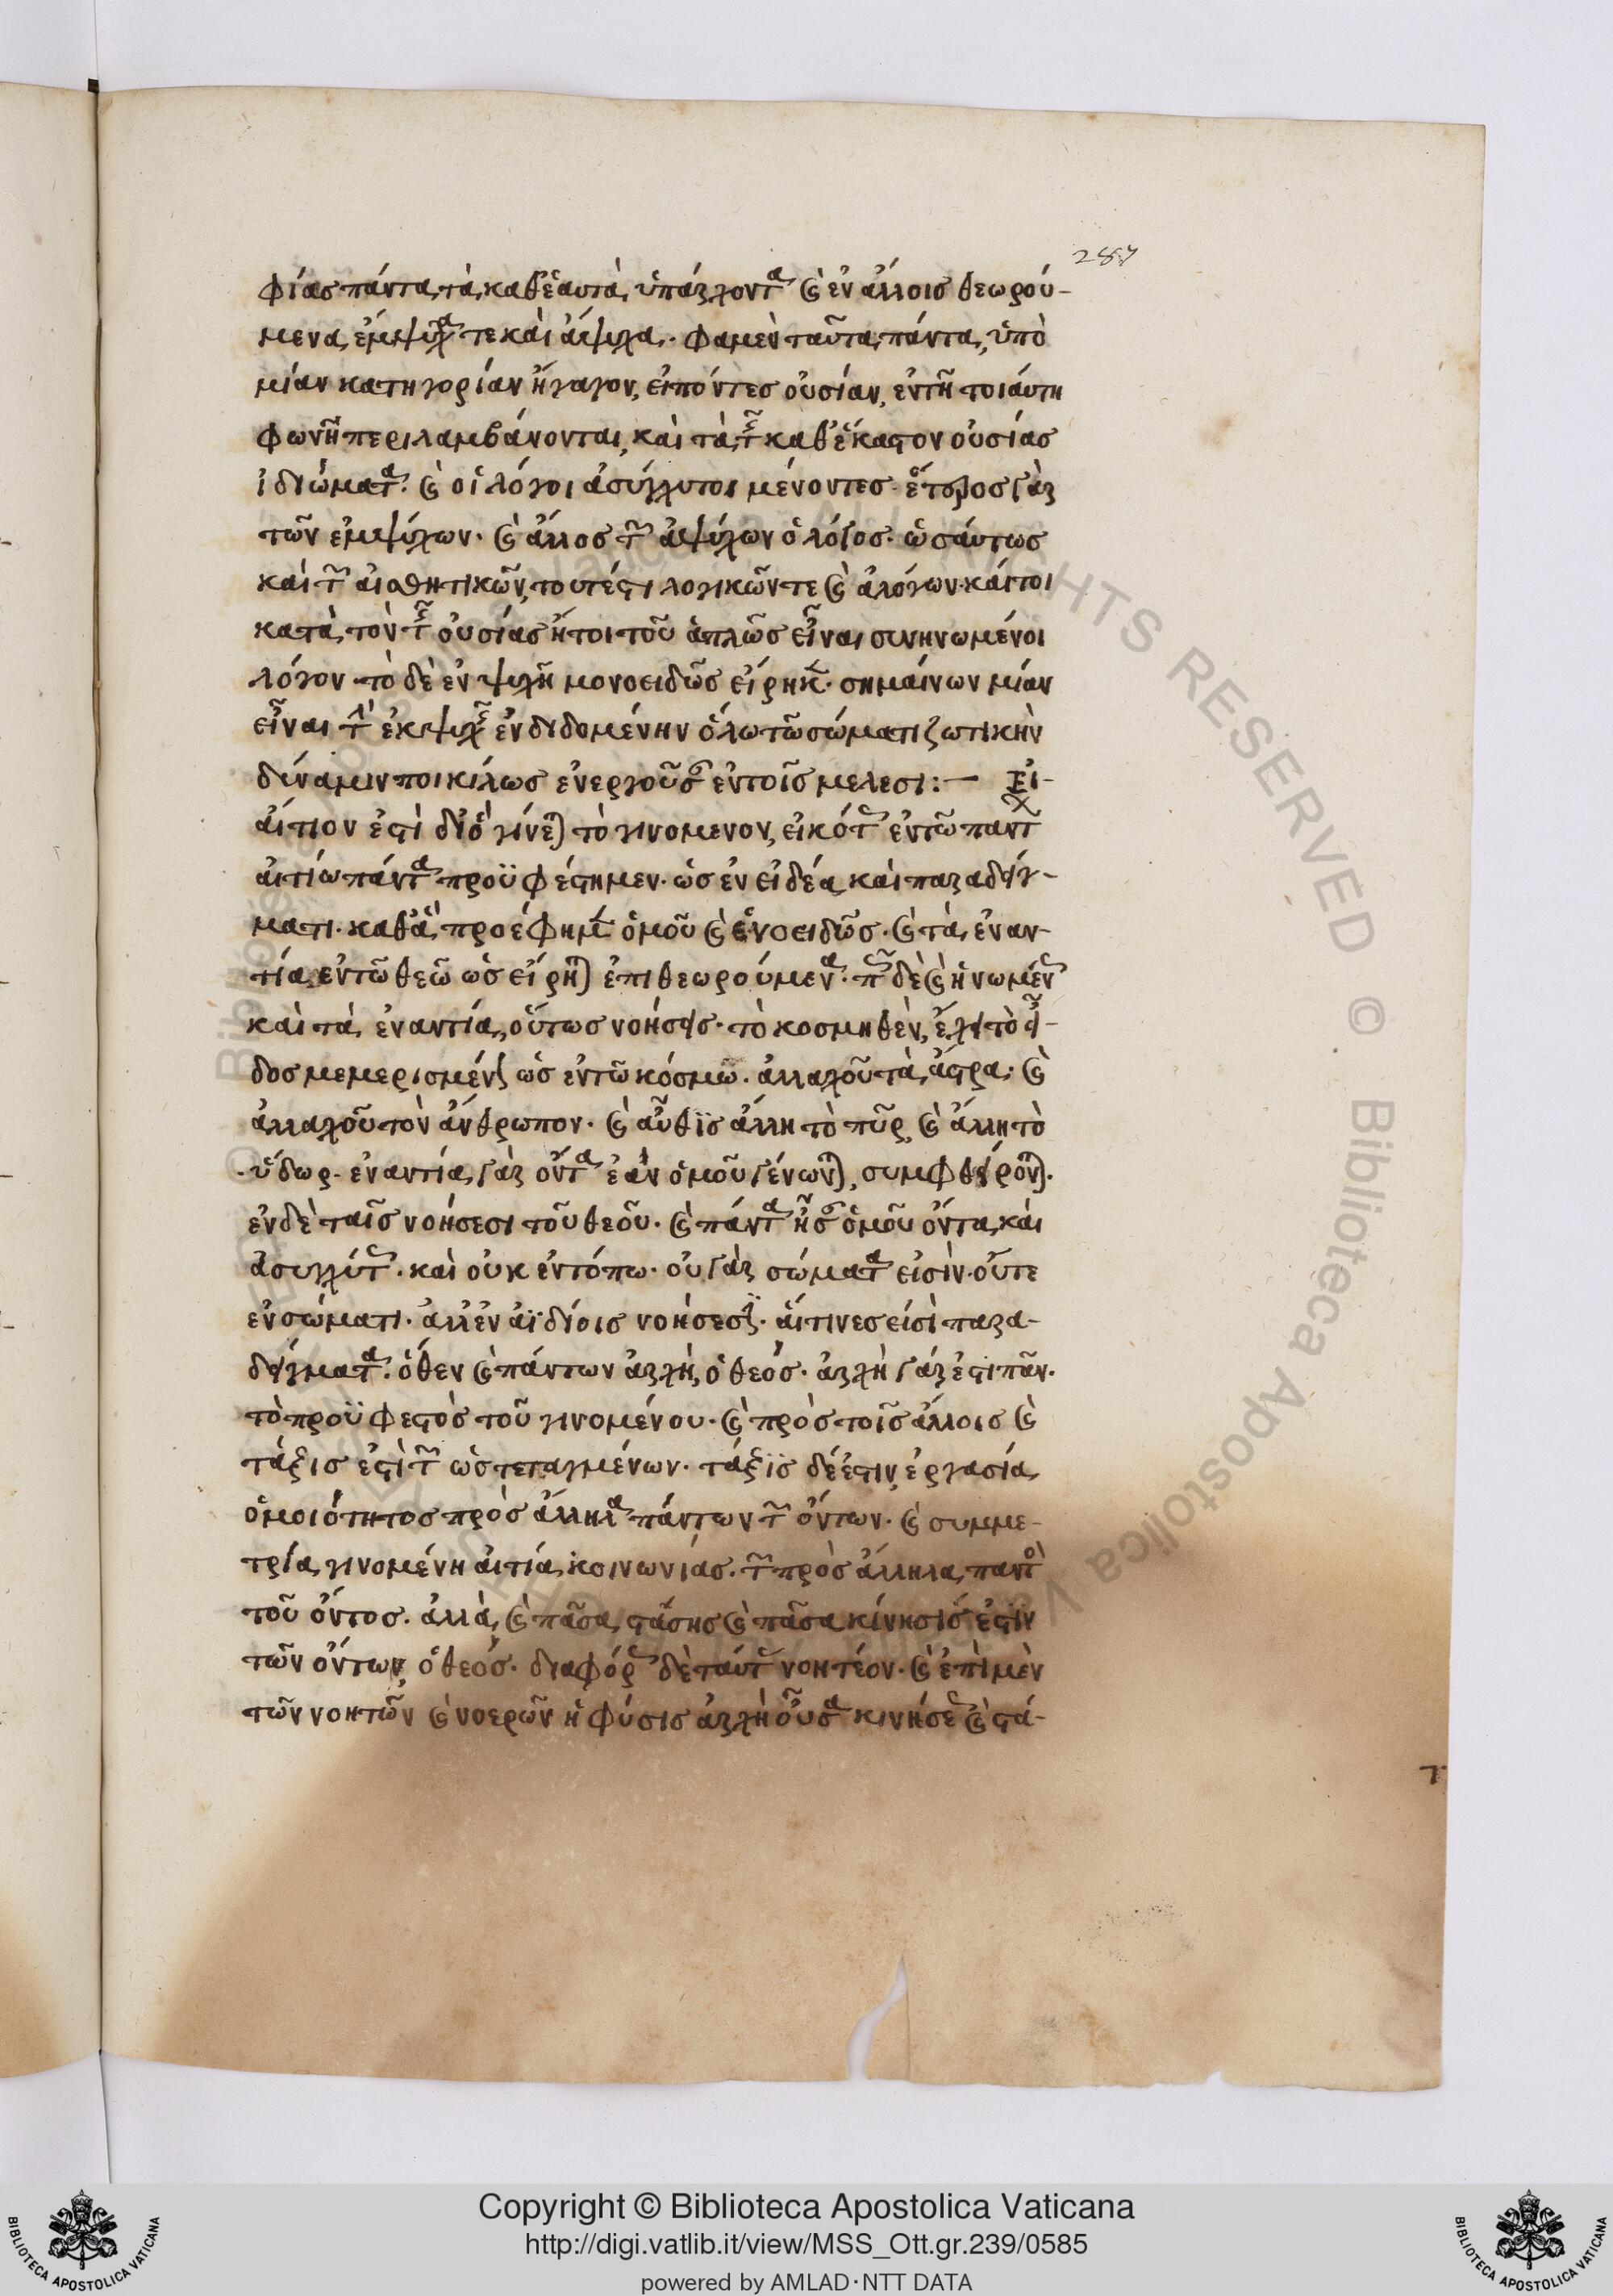 287
φίας πάντα τὰ καθ' ἑαυτὰ ὑπάρχοντα καὶ ἐν ἄλλοις θεωρού-
μενα, ἔμψυχα τε καὶ ἄψυχα. φαμὲν ταῦτα πάντα, ὑπὸ
μίαν κατηγορίαν ἤγαγον, εἰπόντες οὐσίαν, ἐν τῆ τοιάυτη
φωνῆ περιλαμβάνονται, καὶ τὰ τῆς καθ' ἕκαστον οὐσίας
ἰδιώματα. καὶ οἱ λόγοι ἀσύγχυτοι μένοντες. ἕτερος γὰρ
τῶν ἐμψύχων. καὶ ἄλλος τῶν ἀψύχων ὁ λόγος. ὡσάυτως
καὶ τῶν αἰσθητικῶν, τουτέστι λογικῶν τε καὶ ἀλόγων. κάιτοι
κατὰ τὸν τῆς οὐσίας ἤτοι τοῦ ἁπλῶς εἶναι συνηνωμένοι
λόγον. τὸ δὲ ἐν ψυχῆ μονοειδῶς εἴρηκε. σημαίνων μίαν
εἶναι τὴν ἐκ ψυχῆς ἐνδιδομένην ὅλω τῶ σώματι ζωτικὴν
δύναμιν ποικίλως ἐνεργοῦσαν ἐν τοῖς μέλεσι:— Εἰ-
αἴτιον ἐστὶ δι' ὃ γίνεται τὸ γινόμενον, εἰκότως ἐν τῶ πάντων
αἰτίω πάντα προϋφέστηκεν. ὡς ἐν εἰδέα καὶ παραδείγ-
ματι. καθὰ προέφημεν ὁμοῦ καὶ ἑνοειδῶς. καὶ τὰ ἐναν-
τία ἐν τῶ θεῶ ὡς εἴρηται ἐπιθεωρούμενα. πῶς δὲ καὶ ἡνωμένως
καὶ τὰ ἐναντία, οὕτως νοήσεις. τὸ κοσμηθὲν, ἔχει τὸ εἶ-
δος μεμερισμένως ὡς ἐν τῶ κόσμω. ἀλλαχοῦ τὰ ἄστρα. καὶ
ἀλλαχοῦ τὸν ἄνθρωπον. καὶ αὖθϊς ἄλλη τὸ πῦρ, καὶ ἄλλη τὸ
ὕδωρ. ἐναντία γὰρ ὄντα ἐὰν ὁμοῦ γένωνται, συμφθείρονται.
ἐν δὲ ταῖς νοήσεσι τοῦ θεοῦ. καὶ πάντα ὁμοῦ ὄντα, καὶ
ἀσυγχύτως. καὶ οὐκ ἐν τόπω. οὐ γὰρ σώματα εἰσὶν. οὔτε
ἐν σώματι. ἀλλ' ἐν ἀϊδίοις νοήσεσιν. αἵτινες εἰσὶ παρα-
δείγματα. ὅθεν καὶ πάντων ἀρχὴ, ὁ θεός. ἀρχὴ γάρ ἐστι πᾶν.
τὸ προϋφεστὸς τοῦ γινομένου. καὶ πρὸς τοῖς ἄλλοις καὶ
τάξις ἐστὶ τῶν ὡς τεταγμένων. τάξϊς δέ ἐστιν, ἐργασία
ὁμοιότητος πρὸς ἄλληλα πάντων τῶν ὄντων. καὶ συμμε-
τρία, γινομένη αἰτία κοινωνίας. τῶν πρὸς ἄλληλα, παντὸς
τοῦ ὄντος. ἀλλὰ καὶ πᾶσα στάσης καὶ πᾶσα κίνησίς ἐστϊν
τῶν ὄντων, ὁ θεός. διαφόρως δὲ ταύτας νοητέον. καὶ ἐπὶ μὲν
τῶν νοητῶν καὶ νοερῶν ἡ φύσις ἀρχὴ οὖσα κινήσεως καὶ στά-
Copyright © Biblioteca Apostolica Vaticana
http://digi.vatlib.it/view/MSS_Ott.gr.239/0585
powered by AMLAD·NTT DATA
BIBLIOTECA APOSTOLICA VATICANA
BIBLIOTECA APOSTOLICA VATICANA